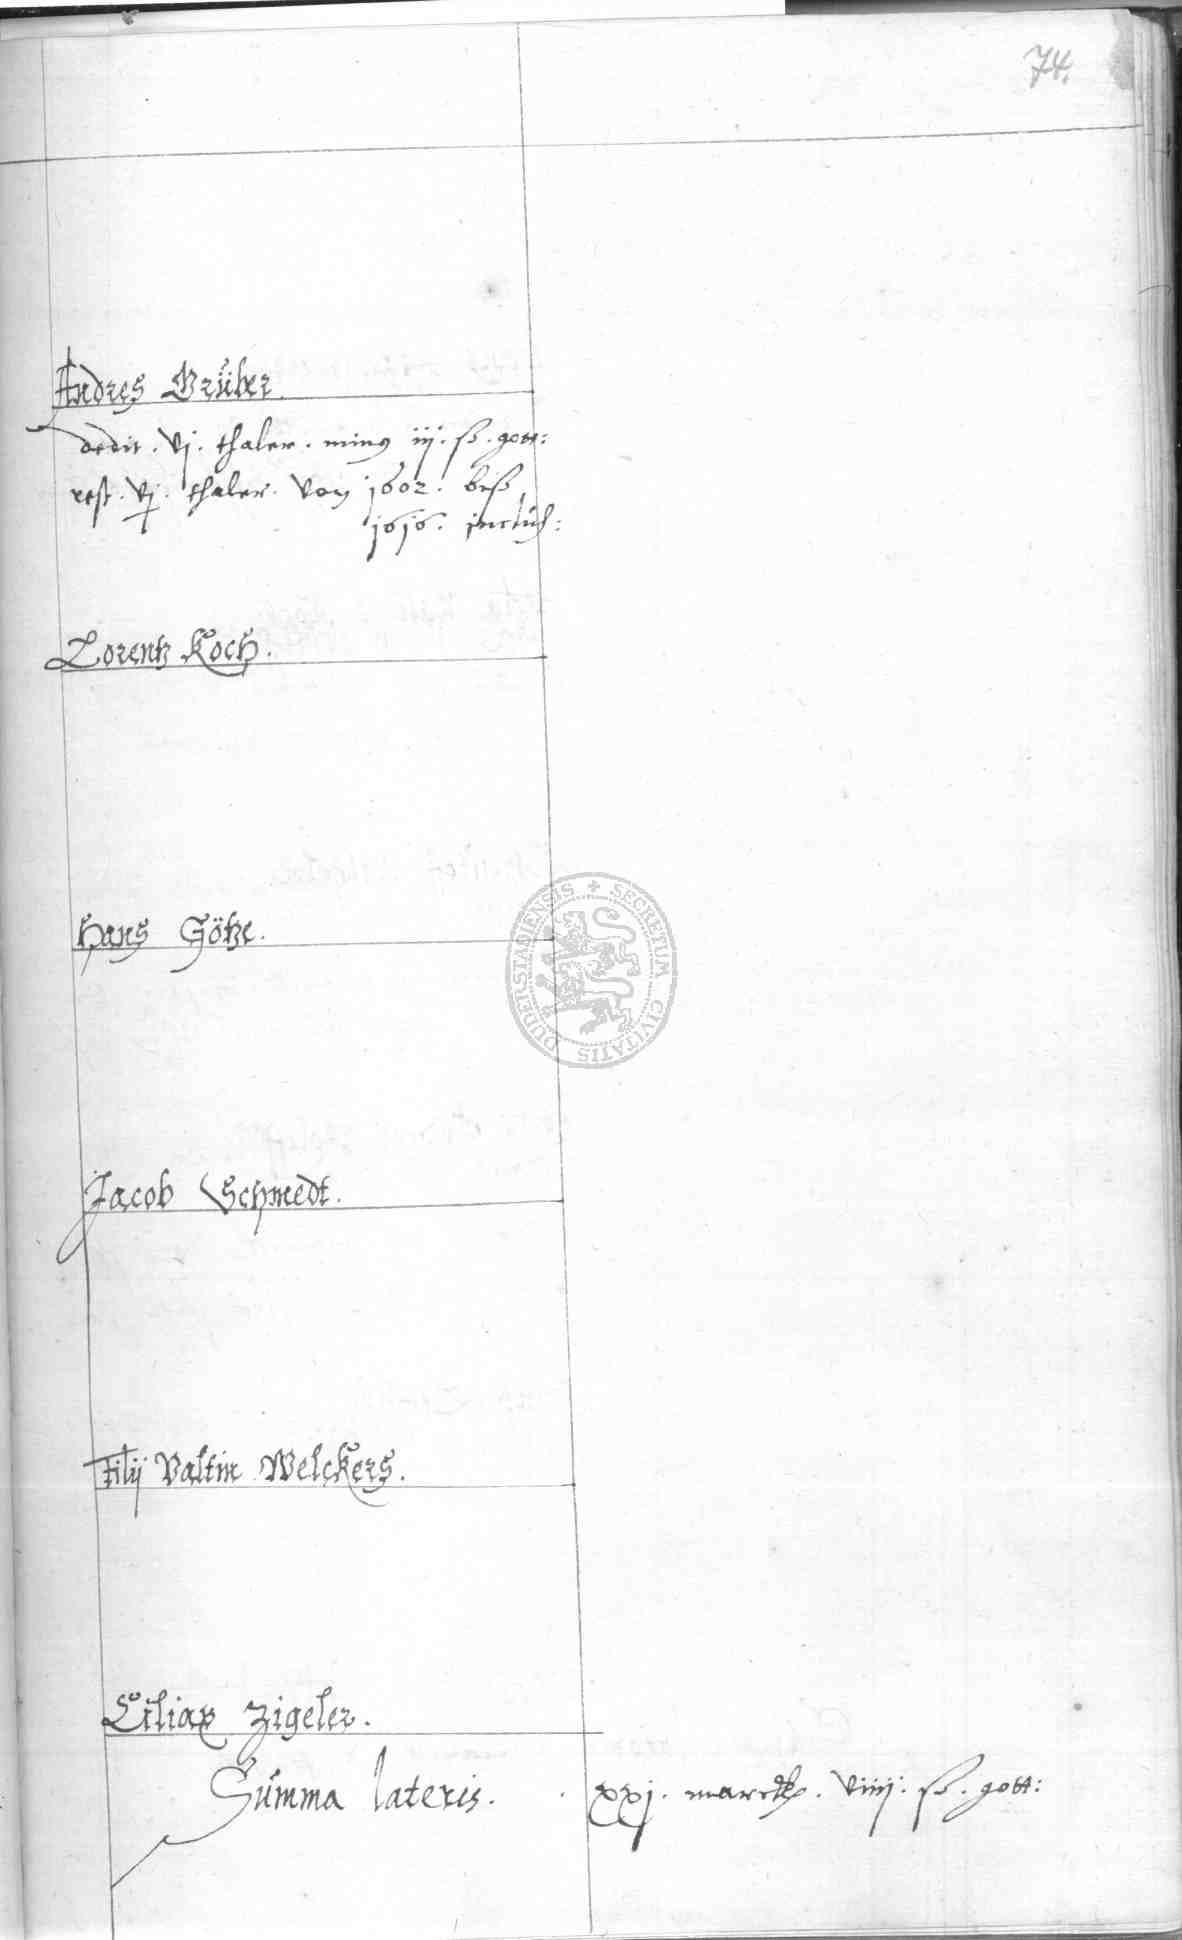 74.
Andres Brüher.
dedit. vj. thaler. minus iij. ß. gott:
rest. vj. thaler. von 1602. biß
1616. inclus:
Lorentz Koch.
Hans Götze.
Jacob Schmedt.
filij Valtin Welckers.
Ciliax Zigeler.
Summa lateris. xxj. marck. viiij. ß. gott:
SECRETUM CIVITATIS DUDERSTADIENSIS